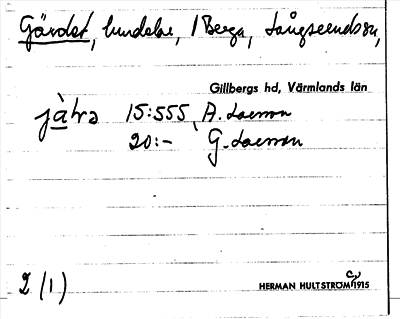 Gärdet, lundelar, 1 Berga, Långseruds sn,
Gillbergs hd, Värmlands län
jàtʒ 15:555, A. Larsson
20:- G. Larsson
2 (1)
HERMAN HULTSTRÖM 1915